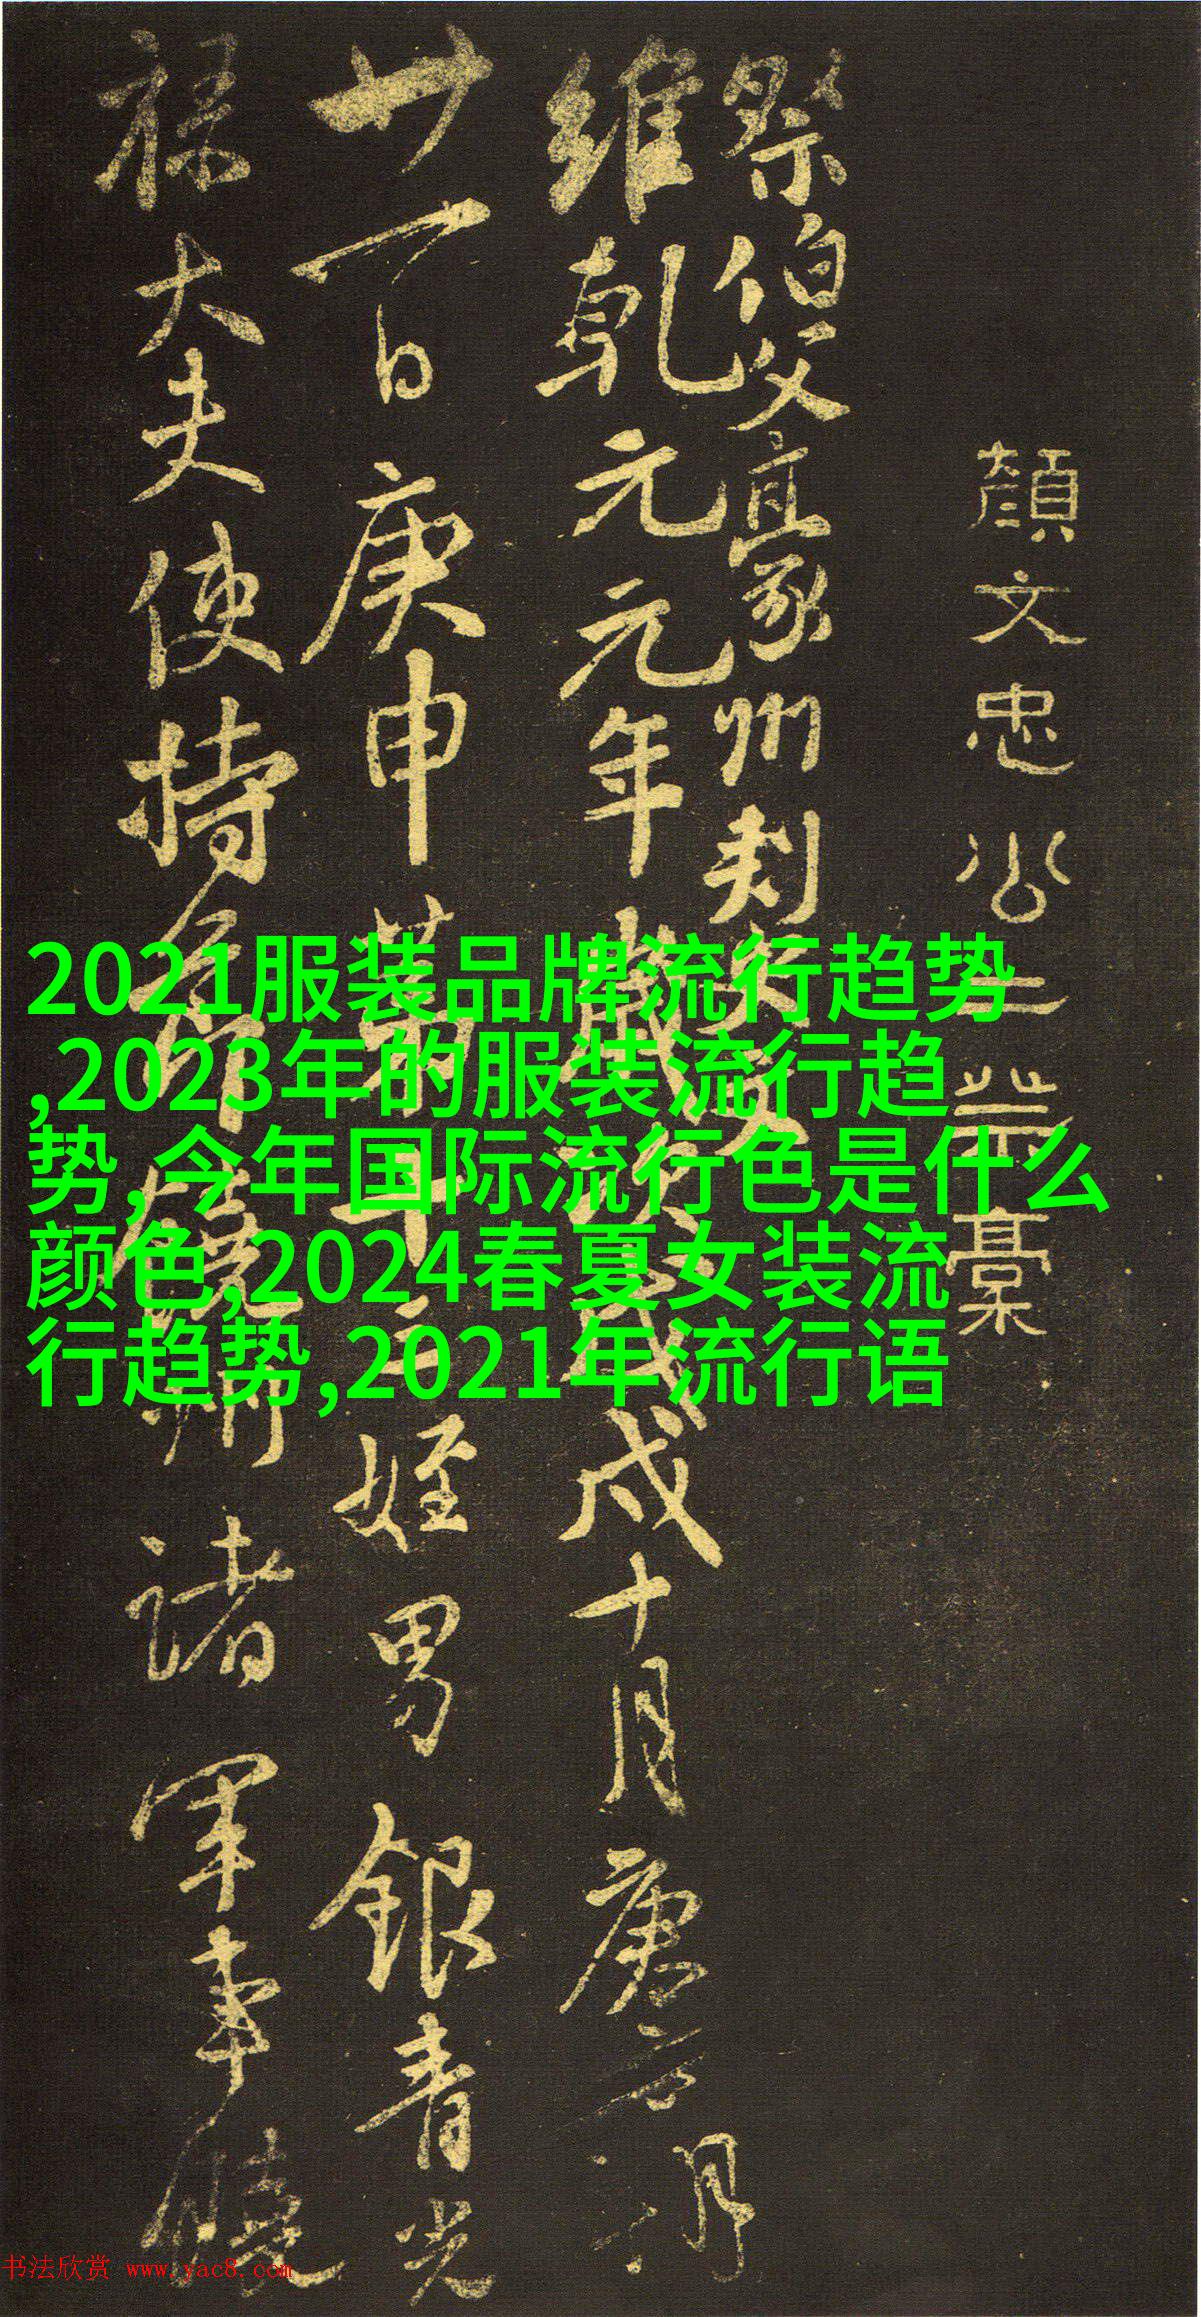 顏文忠公三祭稾
祭伯父豪州刺史文
維乾元元年歲次戊戌十月庚午朔
廿一日庚申第十三姪男銀青光
祿大夫使持節饒州諸軍事饒
2021服装品牌流行趋势
,2023年的服装流行趋
势,今年国际流行色是什么
颜色,2024春夏女装流
行趋势,2021年流行语
书法欣赏 www.yac8.com